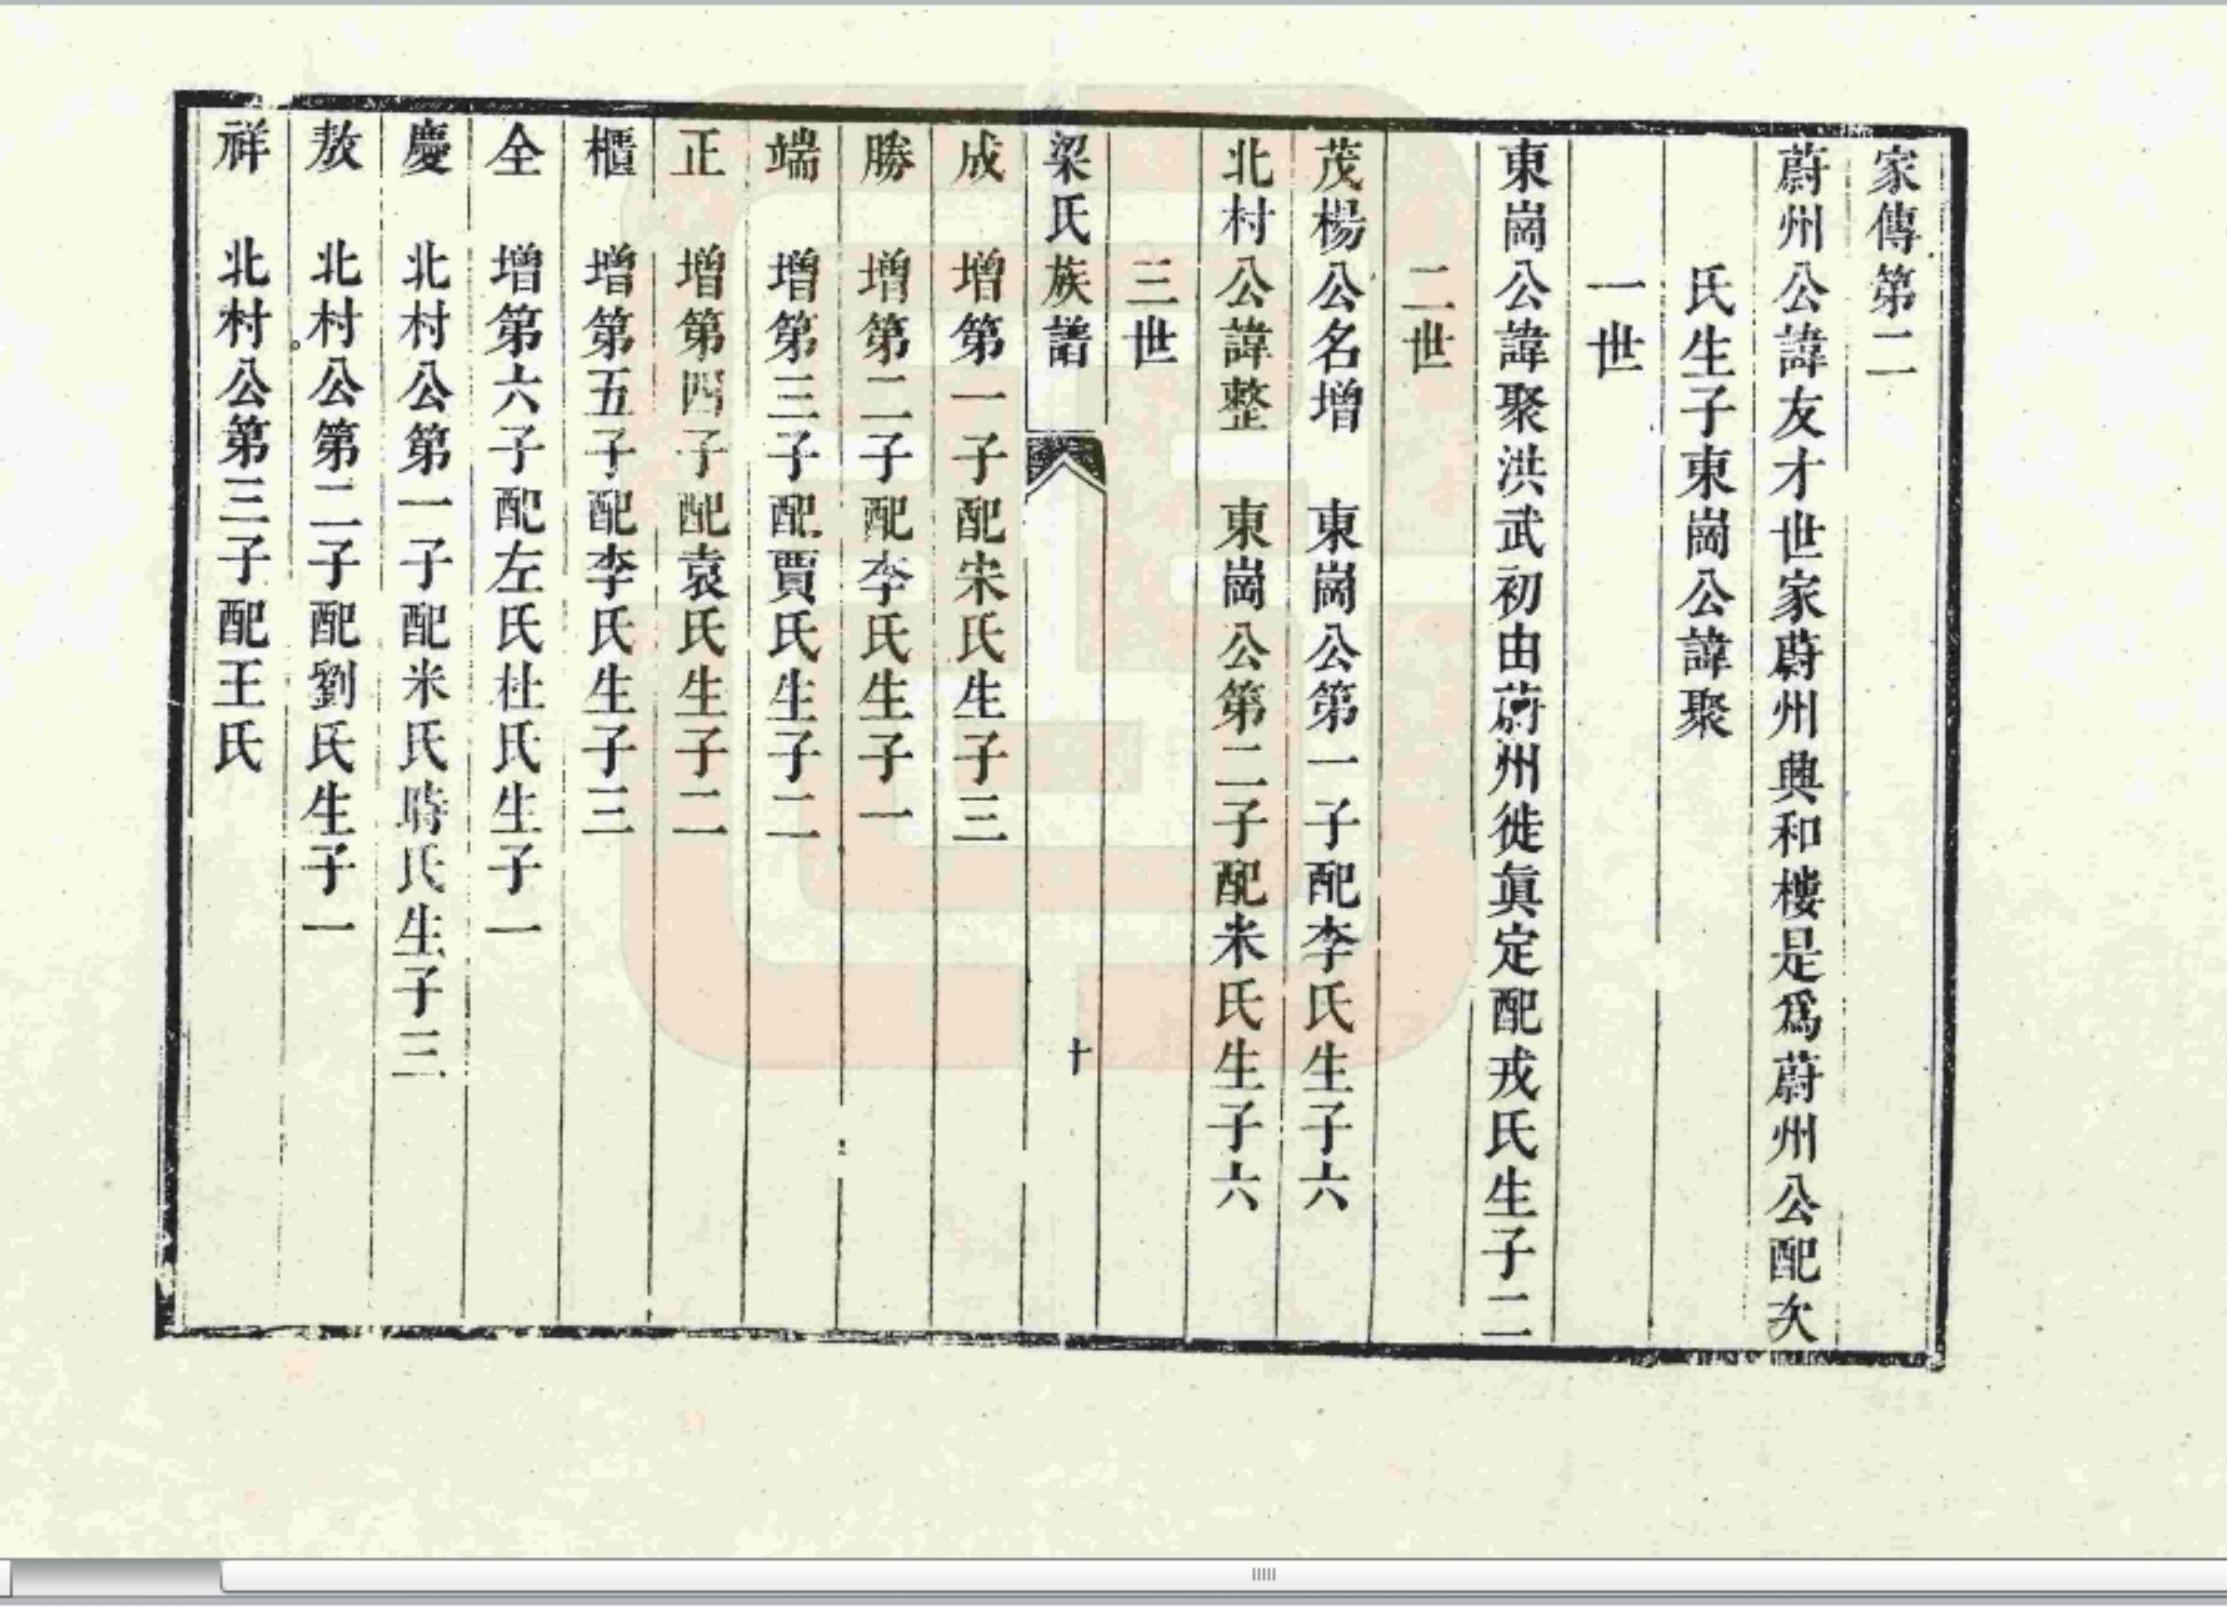 家傳第二
蔚州公諱友才世家蔚州典和樓是爲蔚州公配次
氏生子東崗公諱聚
一世
東崗公諱聚洪武初由蔚州徙眞定配戎氏生子二
二世
茂楊公名增　東崗公第一子配李氏生子六
北村公諱整　東崗公第二子配米氏生子六
三世
梁氏族譜　十
成　增第一子配宋氏生子三
勝　增第二子配李氏生子一
端　增第三子配賈氏生子二
正　增第四子配袁氏生子二
櫃　增第五子配李氏生子三
全　增第六子配左氏杜氏生子一
慶　北村公第一子配米氏時氏生子三
敖　北村公第二子配劉氏生子一
祥　北村公第三子配王氏